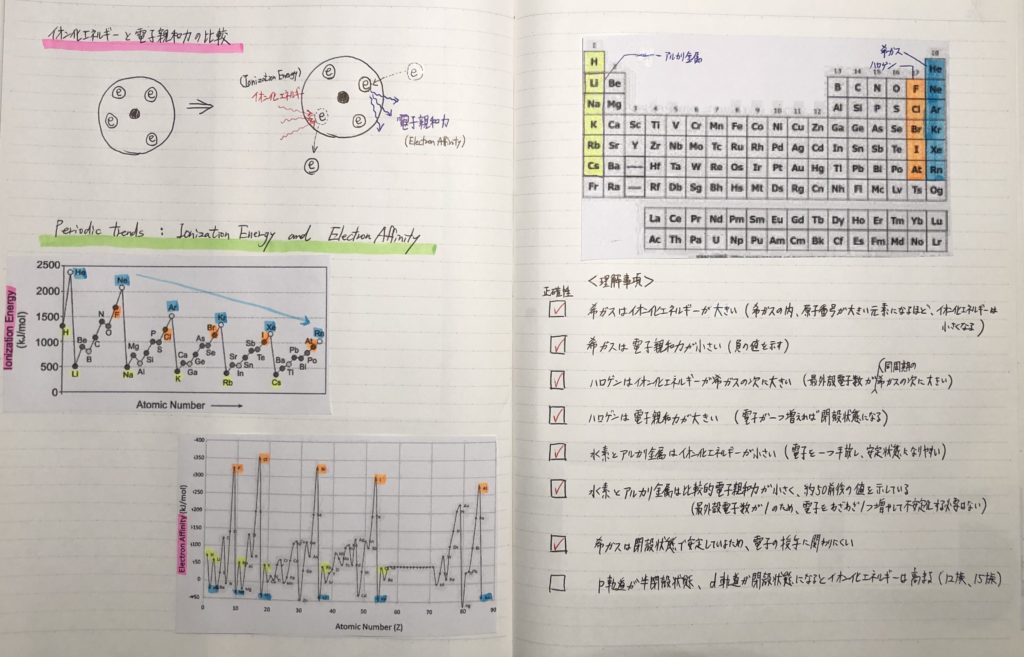 イオン化エネルギーと電子親和力の比較
e e e e
e e e e
(Ionization Energy)
イオン化エネルギー
電子親和力
(Electron Affinity)
e
Periodic trends : Ionization Energy and Electron Affinity
Ionization Energy
(kJ/mol)
2500
2000
1500
1000
500
0
He Ne Ar Kr Xe Rn
H F Cl Br I At
N O C Be B
P S Mg Si Al
As Se Ge Ca Ga
Sb Te Sr Sn In
Po Bi Ba Tl Pb
Li Na K Rb Cs
Atomic Number
Electron Affinity (kJ/mol)
0 10 20 30 40 50 60 70 80 90
Atomic Number (Z)
アルカリ金属
希ガス
ハロゲン
1 18
H He
13 14 15 16 17
Li Be B C N O F Ne
Na Mg 3 4 5 6 7 8 9 10 11 12 Al Si P S Cl Ar
K Ca Sc Ti V Cr Mn Fe Co Ni Cu Zn Ga Ge As Se Br Kr
Rb Sr Y Zr Nb Mo Tc Ru Rh Pd Ag Cd In Sn Sb Te I Xe
Cs Ba Hf Ta W Re Os Ir Pt Au Hg Tl Pb Bi Po At Rn
Fr Ra Rf Db Sg Bh Hs Mt Ds Rg Cn Nh Fl Mc Lv Ts Og
La Ce Pr Nd Pm Sm Eu Gd Tb Dy Ho Er Tm Yb Lu
Ac Th Pa U Np Pu Am Cm Bk Cf Es Fm Md No Lr
<理解事項>
正確性
希ガスはイオン化エネルギーが大きい (希ガスの内、原子番号が大きい元素になるほど、イオン化エネルギーは
小さくなる)
希ガスは電子親和力が小さい (負の値を示す)
ハロゲンはイオン化エネルギーが希ガスの次に大きい (最外殻電子数が同周期の希ガスの次に大きい)
ハロゲンは電子親和力が大きい (電子が一つ増えれば閉殻状態になる)
水素とアルカリ金属はイオン化エネルギーが小さい (電子を一つ手放し、安定状態になりやすい)
水素とアルカリ金属は比較的電子親和力が小さく、約50前後の値を示している
(最外殻電子数が1のため、電子をわざわざ1つ増やして不安定化する必要はない)
希ガスは閉殻状態で安定しているため、電子の授受に関わりにくい
p軌道が半閉殻状態、d軌道が閉殻状態になるとイオン化エネルギーは高まる (12族、15族)